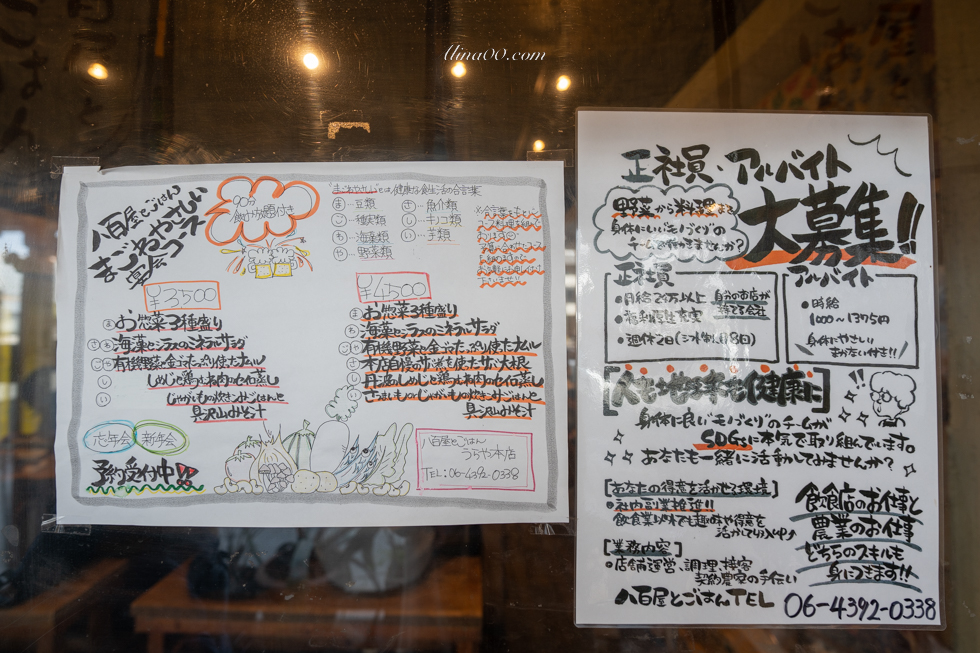 llina00.com
八百屋とごはん
まごわやさしい
宴会コース
90分
飲み放題付き
"まごわやさしい"とは、健康な食生活の合言葉
ま…豆類
ご…種実類
わ…海藻類
や…野菜類
さ…魚介類
し…キノコ類
い…芋類
¥3500
お惣菜3種盛り
海藻とシラスのミネラルサラダ
しめじと鶏つみれ肉のセイロ蒸し
じゃがいもの炊きこみごはんと
具沢山みそ汁
¥4500
お惣菜3種盛り
海藻とシラスのミネラルサラダ
丹波しめじと鶏つみれ肉のセイロ蒸し
さまいものとじゃがいもの炊きこみごはんと
具沢山みそ汁
忘年会 新年会
予約受付中!!
八百屋とごはん
うらや本店
TEL:06-4392-0338
正社員・アルバイト
大募集!!
野菜から料理まで
身体にいいモノづくりの
チームで働きませんか?
正社員
・福利厚生充実
・週休2日(シフト制/月8日)
自分のお店が
持てる会社
アルバイト
・時給
1000〜1375円
身体にやさしい
まかない付き!!
[人も地球も健康に]
身体に良い"モノづくり"のチームが
SDGsに本気で取り組んでいます。
あなたも一緒に活動してみませんか?
[あなたの得意を活かせる環境]
・社内副業推進!!
飲食業以外でも趣味や得意を
活かして収入UP↑
[業務内容]
・店舗運営、調理、接客
契約農家の手伝い
飲食店のお仕事と
農業のお仕事
どちらのスキルも
身につきます!!
八百屋とごはんTEL 06-4392-0338